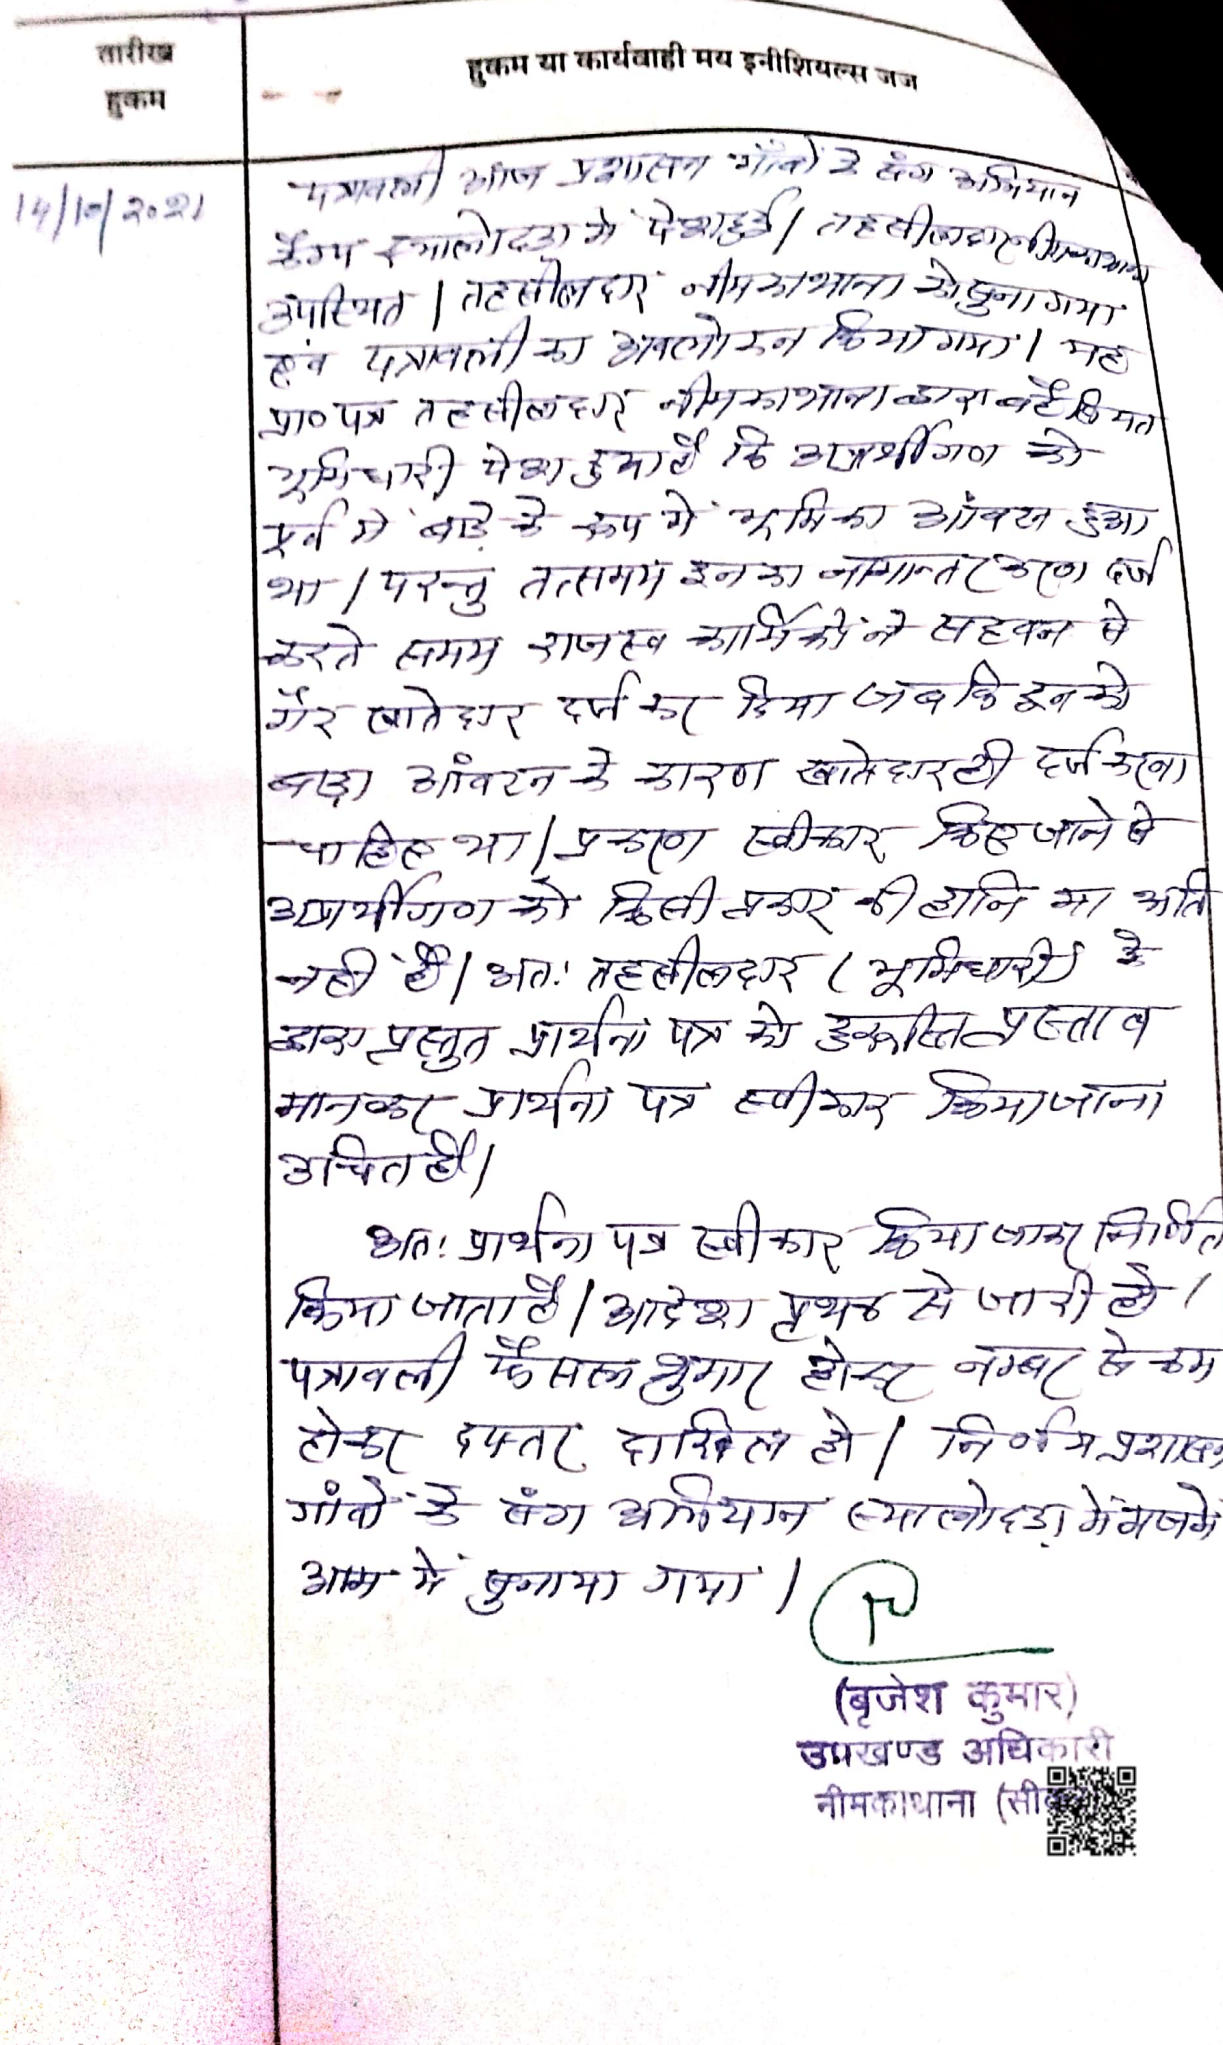 तारीख
हुकम
हुकम या कार्यवाही मय इनीशियल्स जज
14/10/2021
पत्रावली आज प्रशासन गाँवों के संग अभियान
कैम्प स्यालोदडा में पेश हुई। तहसीलदार नीमकाथाना
उपस्थित। तहसीलदार नीमकाथाना को सुना गया
एवं पत्रावली का अवलोकन किया गया। यह
प्रा० पत्र तहसीलदार नीमकाथाना द्वारा बहैसियत
भूमिधारी पेश हुआ है कि अप्रार्थीगण को
पूर्व में बाडे के रूप में भूमि का आंवटन हुआ
था। परन्तु तत्समय इनका नामान्तरकरण दर्ज
करते समय राजस्व कार्मिकों ने सहवन से
गैर खातेदार दर्ज कर दिया जबकि इनको
बाडा आंवटन के कारण खातेदार ही दर्ज करना
चाहिए था। प्रकरण स्वीकार किए जाने से
अप्रार्थीगण को किसी प्रकार की हानि या क्षति
नही है। अत: तहसीलदार (भूमिधारी) के
द्वारा प्रस्तुत प्रार्थना पत्र को प्रस्ताव
मानकर प्रार्थना पत्र स्वीकार किया जाना
उचित है।
अत: प्रार्थना पत्र स्वीकार किया जाकर निर्णित
किया जाता है। आदेश पृथक से जारी हो।
पत्रावली फैसल शुमार होकर नम्बर से कम
होकर दफ्तर दाखिल हो। निर्णय प्रशासन
गांवों के संग अभियान स्यालोदडा में मजमें
आम में सुनाया गया।
(बृजेश कुमार)
उपखण्ड अधिकारी
नीमकाथाना